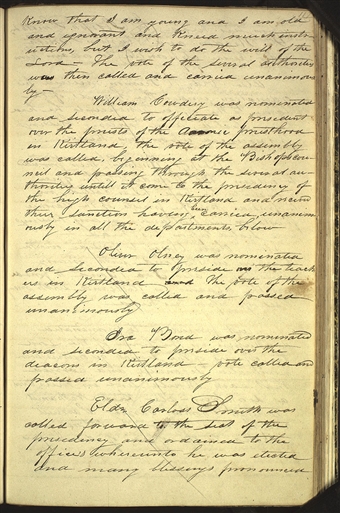 know that I am young and I am old
and ignorant and kneed much inst-
ructions, but I wish to do the will of the
Lord — The vote of the several authorities
was then called and carried unanimous
ly —
William Cowdery was nominated
and seconded to officiate as president
over the priests of the Aaronic priesthood
in Kirtland, the vote of the assembly
was called, beginning at the Bishops coun-
cil and passing through the several au-
thorities untill it come to the presidency of
the high counsel in Kirtland and received
their sanction having been carried unanim-
ously in all the departments below
Oliver Olney was nominated
and seconded to preside over the teach
ers in Kirtland and the vote of the
assembly was called and passed
unanimously
Ira Bond was nominated
and seconded to preside over the
deacons in Kirtland — vote called and
passed unanimously
Eldr Carloss Smith was
called forward to the seat of the
presidency and ordained to the
office's whereunto he was elected
and many blessings pronounced